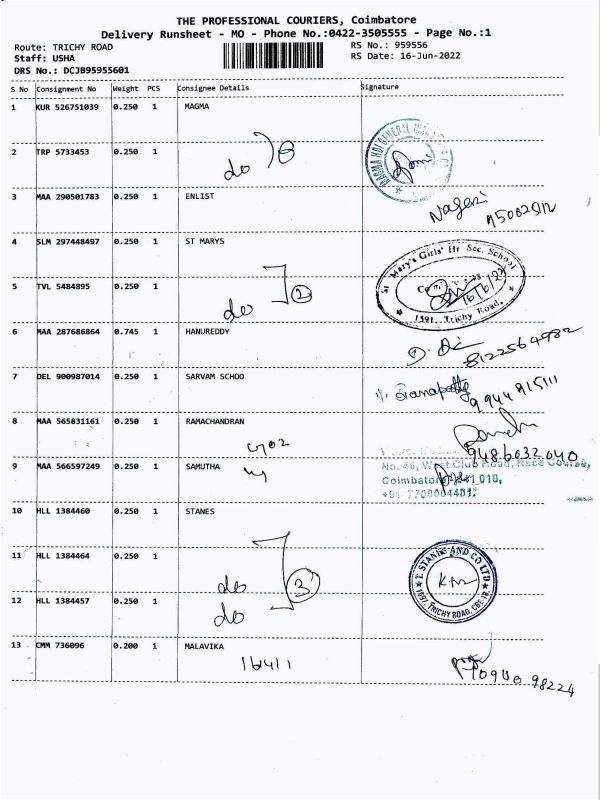 THE PROFESSIONAL COURIERS, Coimbatore
Delivery Runsheet - MO - Phone No.:0422-3505555 - Page No.:1
Route: TRICHY ROAD RS No.: 959556
Staff: USHA RS Date: 16-Jun-2022
DRS No.: DCJB95955601
S No Consignment No Weight PCS Consignee Details Signature
1 KUR 526751039 0.250 1 MAGMA
2 TRP 5733453 0.250 1 do
MAGMA HDI GENERAL
3 MAA 290501783 0.250 1 ENLIST
4 SLM 297448497 0.250 1 ST MARYS
St Mary's Girls' Hr Sec. School
16/6/22
1591, Trichy Road,
5 TVL 5484895 0.250 1 do 2
6 MAA 287686864 0.745 1 HANUREDDY
8122564982
7 DEL 900987014 0.250 1 SARVAM SCHOO
8 MAA 565831161 0.250 1 RAMACHANDRAN
9486032040
9 MAA 566597249 0.250 1 SAMUTHA
No. 46, West Club Road, Race Course,
Coimbatore 641 018,
10 HLL 1384460 0.250 1 STANES
11 HLL 1384464 0.250 1 do 3
T. STANES AND CO LTD
TRICHY ROAD, CBE-18
12 HLL 1384457 0.250 1 do
13 CMM 736096 0.200 1 MALAVIKA
16411